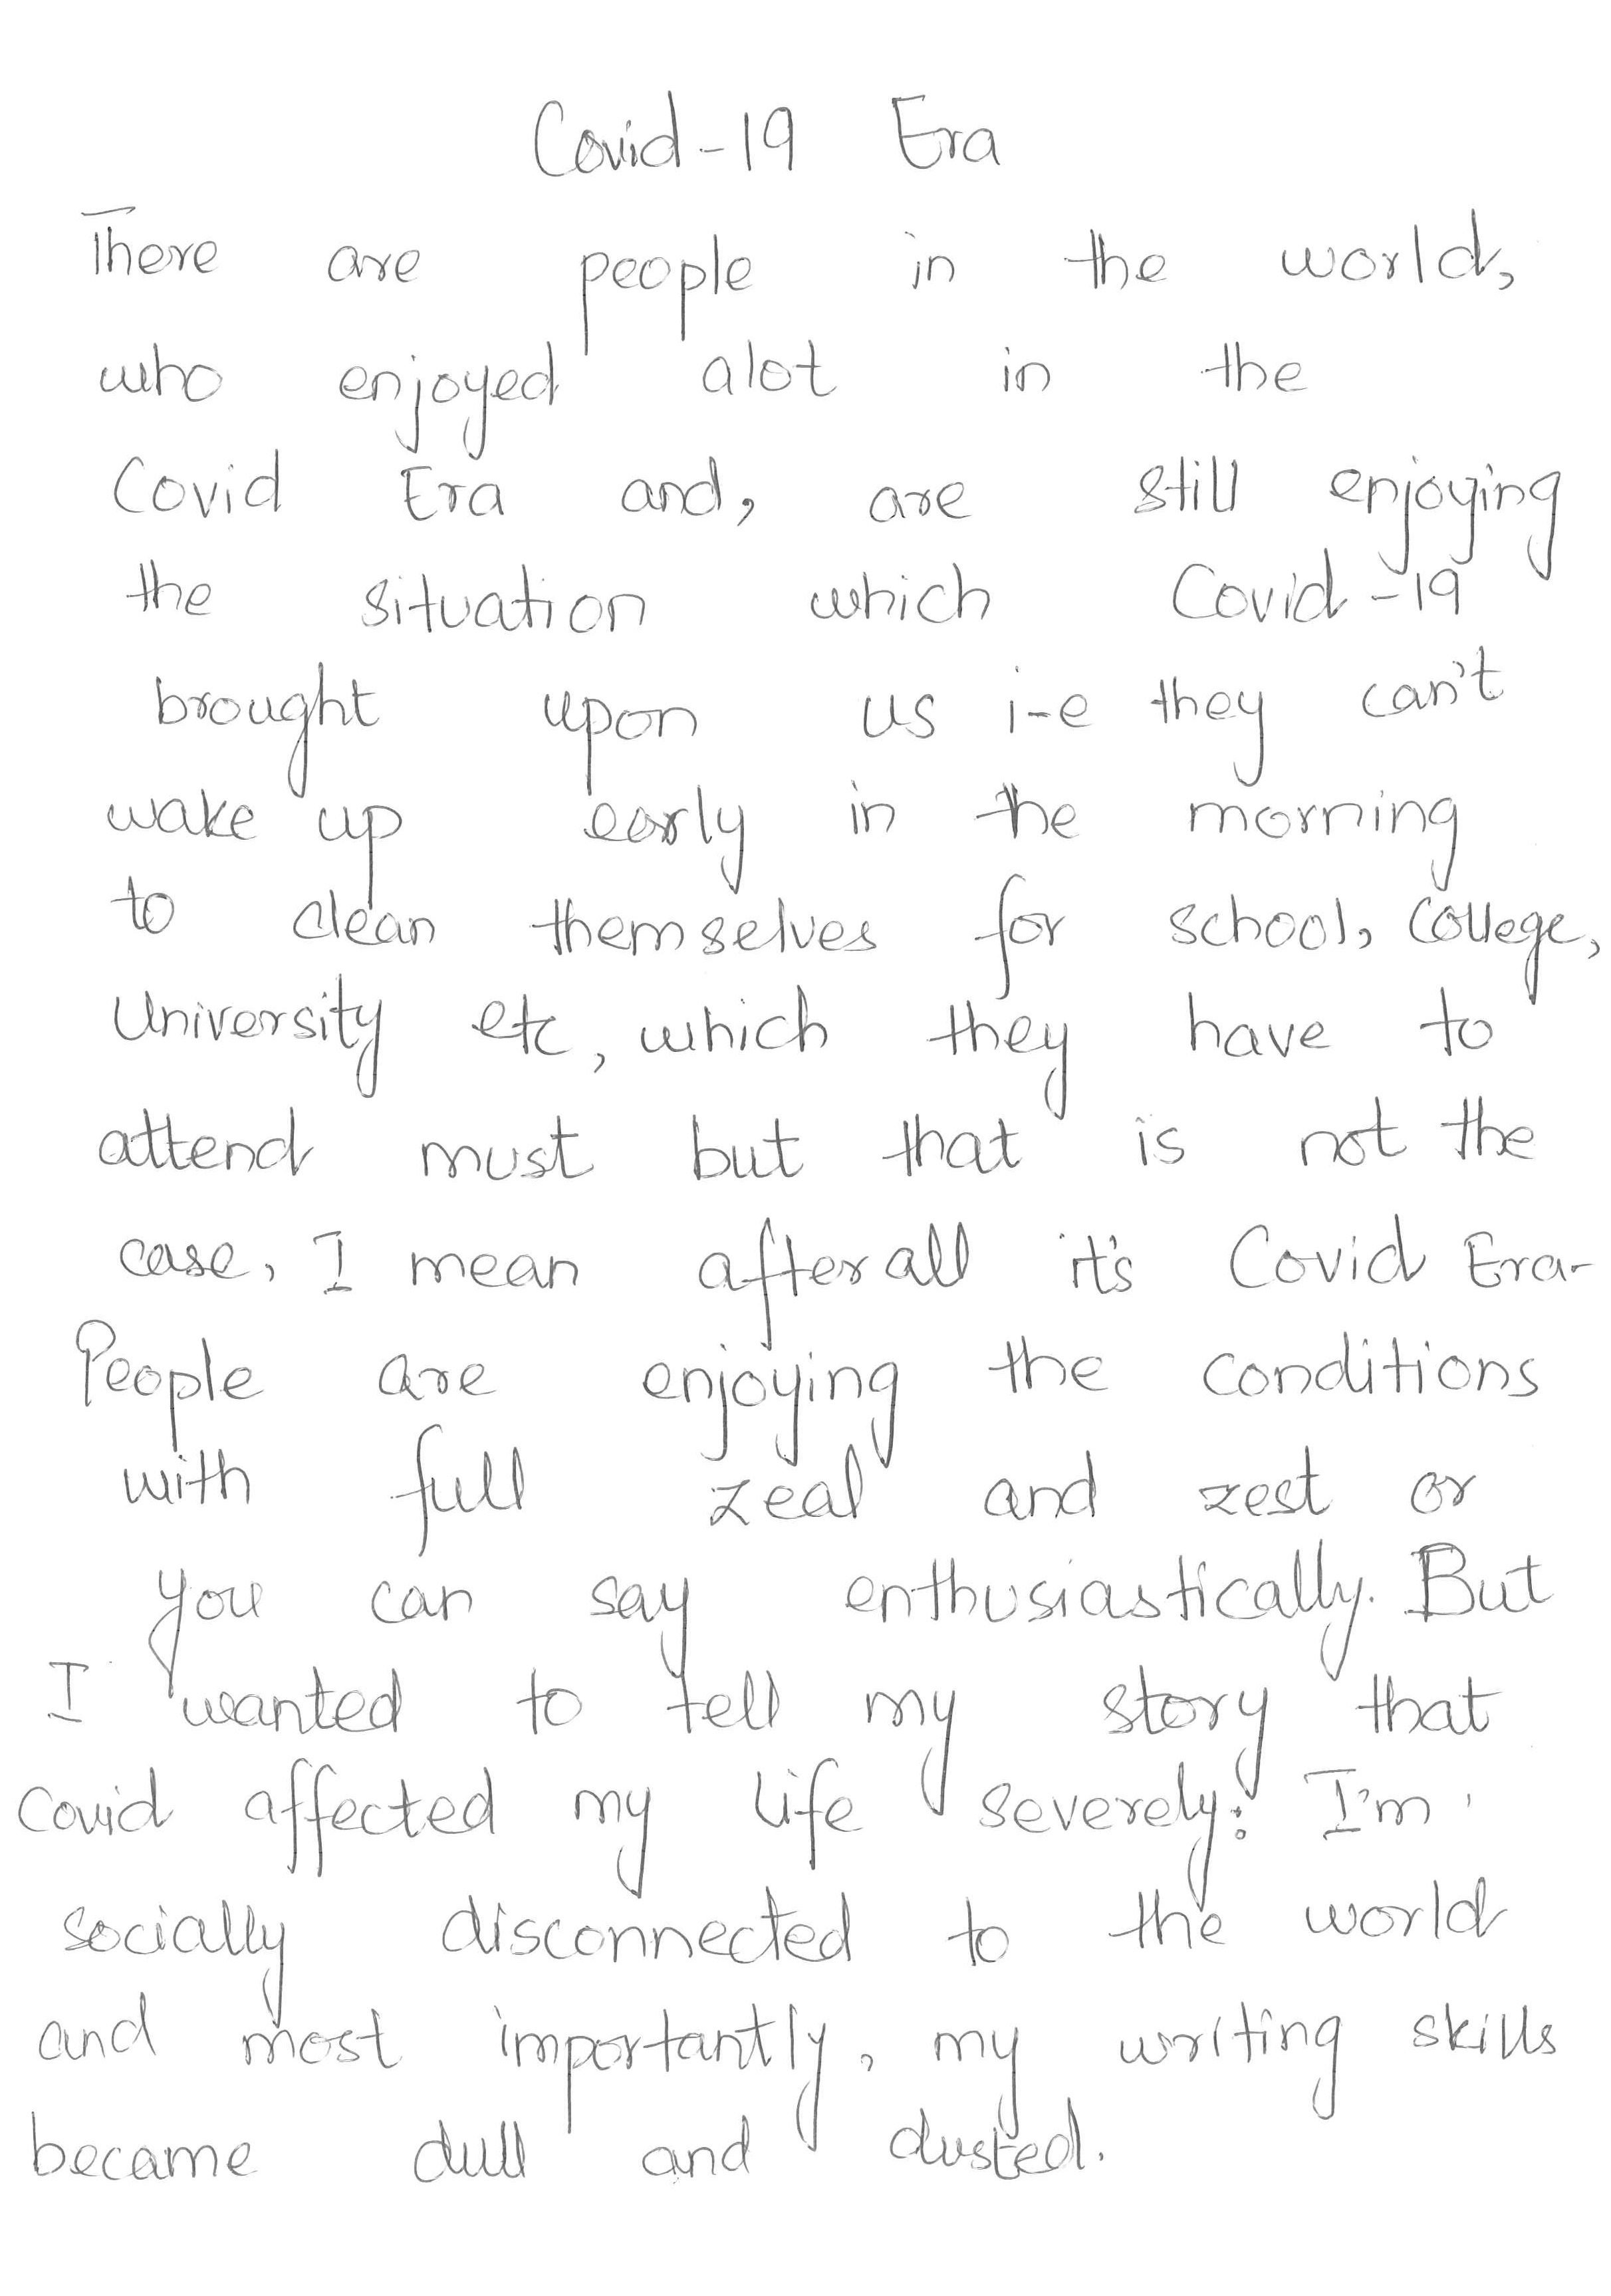 Covid-19 Era
There are people in the world,
who enjoyed alot in the
Covid Era and, are still enjoying
the situation which Covid-19
brought upon us i-e they can't
wake up early in the morning
to clean themselves for school, College,
University etc, which they have to
attend must but that is not the
case, I mean after all it's Covid Era-
People are enjoying the conditions
with full zeal and zest or
you can say enthusiastically. But
I wanted to tell my story that
Covid affected my life severely: I'm
socially disconnected to the world
and most importantly, my writing skills
became dull and dusted.